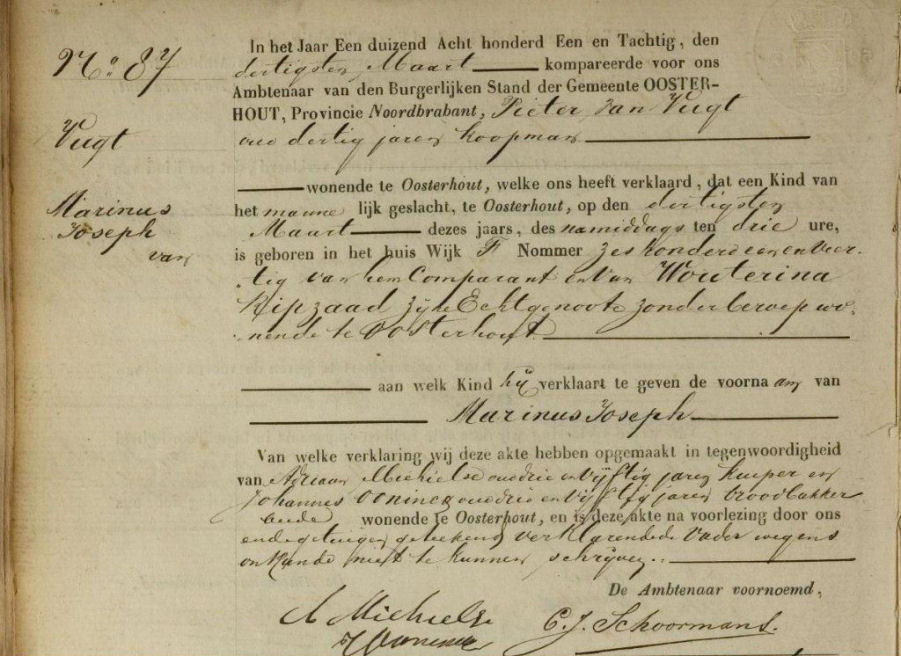 No. 87
In het Jaar Een duizend Acht honderd Een en Tachtig, den
dertigsten Maart kompareerde voor ons
Ambtenaar van den Burgerlijken Stand der Gemeente OOSTER-
HOUT, Provincie Noordbrabant, Pieter van Vugt
oud dertig jaren koopman
Vugt
wonende te Oosterhout, welke ons heeft verklaard, dat een Kind van
het manne lijk geslacht, te Oosterhout, op den dertigsten
Maart dezes jaars, des namiddags ten drie ure,
is geboren in het huis Wijk F Nommer zes honderd een en veer-
tig van hem Comparant en van Wouterina
Ripzaad zijne Echtgenoote zonder beroep wo-
nende te Oosterhout
Marinus
Joseph
van
aan welk Kind hij verklaart te geven de voorna am van
Marinus Joseph
Van welke verklaring wij deze akte hebben opgemaakt in tegenwoordigheid
van Adriaan Michielse oud drie en vijftig jaren kuiper en
Johannes Oonincx oud drie en vijftig jaren broodbakker
beide wonende te Oosterhout, en is deze akte na voorlezing door ons
en de getuigen geteekend verklarende de Vader wegens
onkunde niet te kunnen schrijven.
De Ambtenaar voornoemd,
A Michielse
C. J. Schoormans.